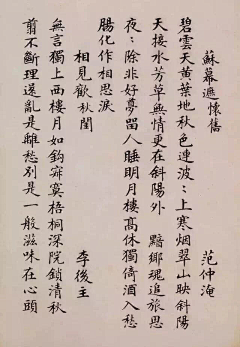 蘇幕遮懷舊 范仲淹
碧雲天黃葉地秋色連波〻上寒烟翠山映斜陽
天接水芳草無情更在斜陽外 黯鄉魂追旅思
夜〻除非好夢留人睡明月樓高休獨倚酒入愁
腸化作相思淚
相見歡秋閨 李後主
無言獨上西樓月如鈎寂寞梧桐深院鎖清秋
翦不斷理還亂是離愁別是一般滋味在心頭